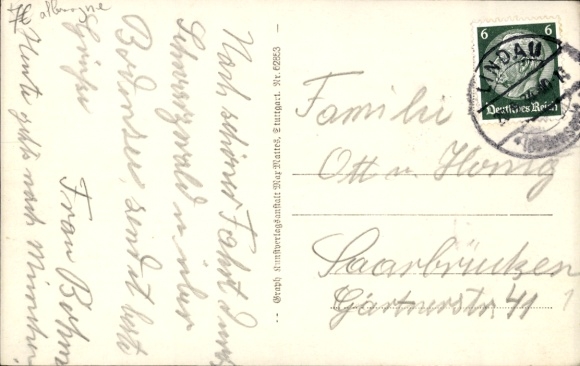 allemagne
Nach schöner Fahrt durch
Schwarzwald u. über
Bodensee, sendet beste
Grüße
Frau Böhm
Heute gehts nach München
-- Graph. Kunstverlagsanstalt Max Maires, Stuttgart. Nr. 62853 --
6 6
Deutsches Reich
LINDAU
(Bodensee)
Familie
Ott u. Honig
Saarbrücken
Gärtnerstr. 41